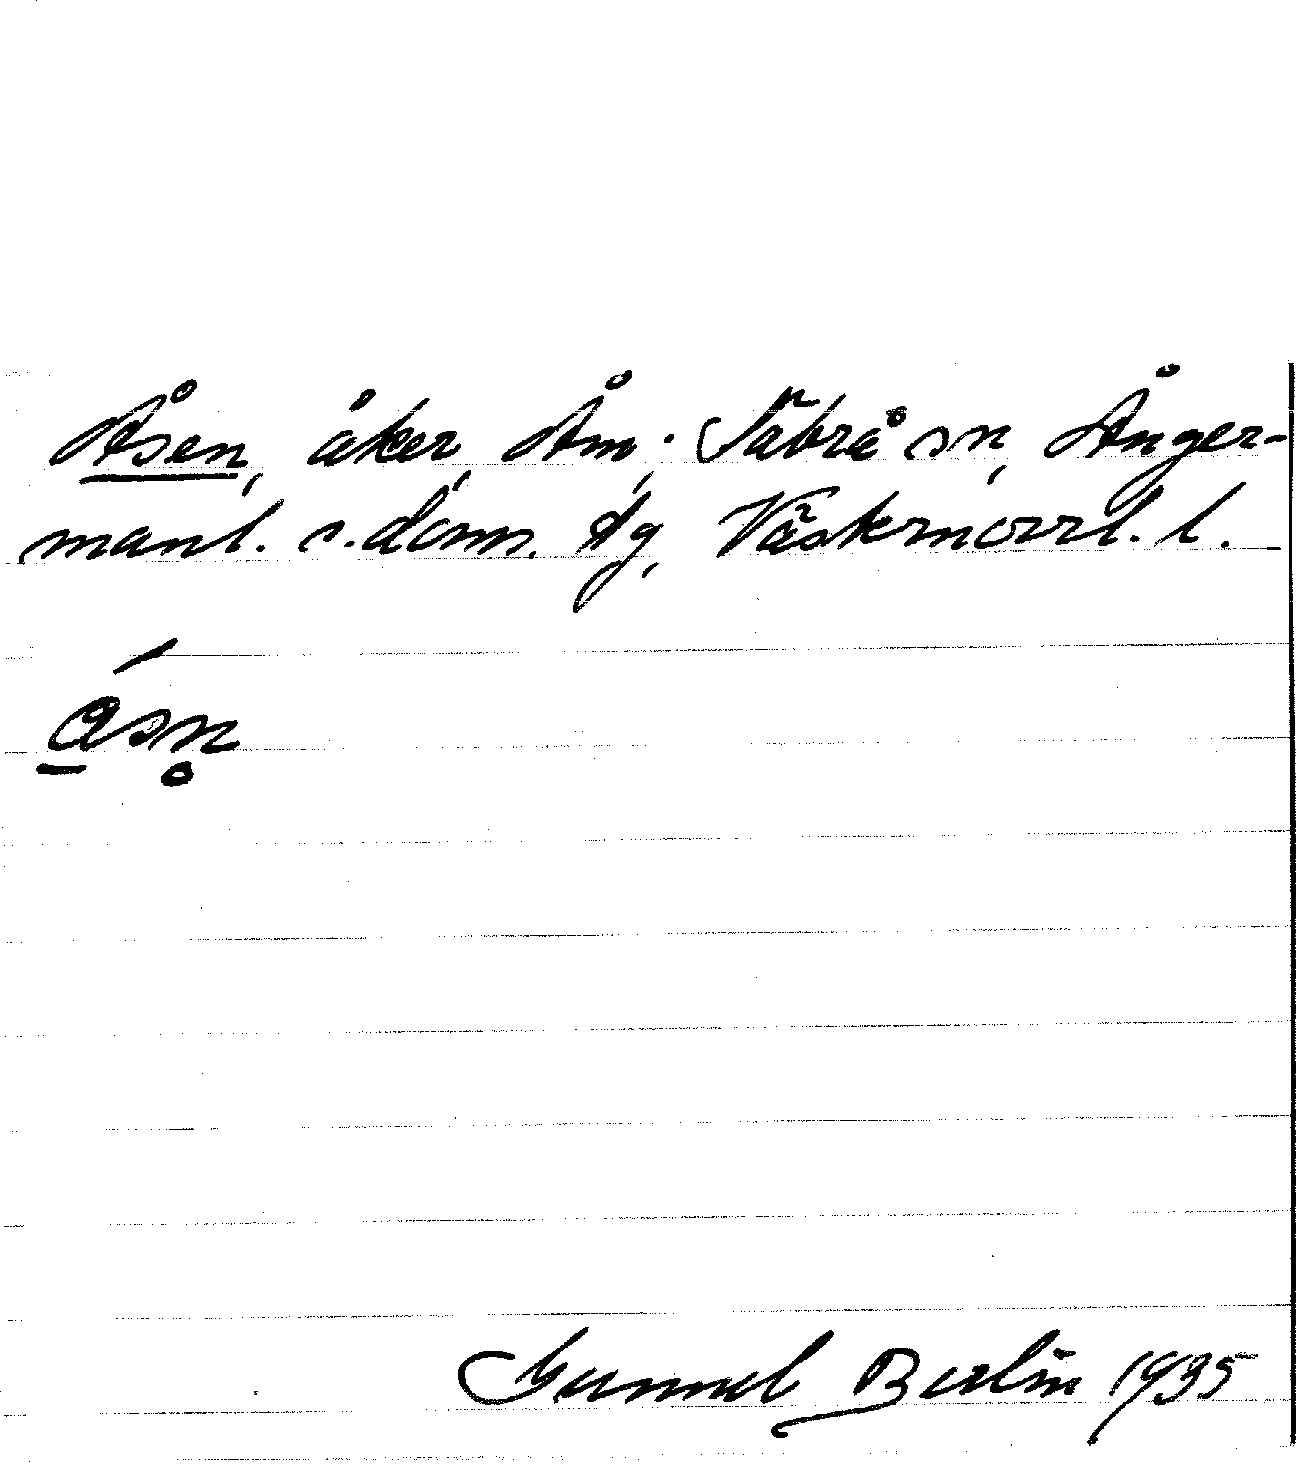 Åsen, åker, Åm, Säbrå sn, Ånger-
manl. s. doms. tg, Västernorrl. l.
ásn̥
Gunnel Berlin 1935